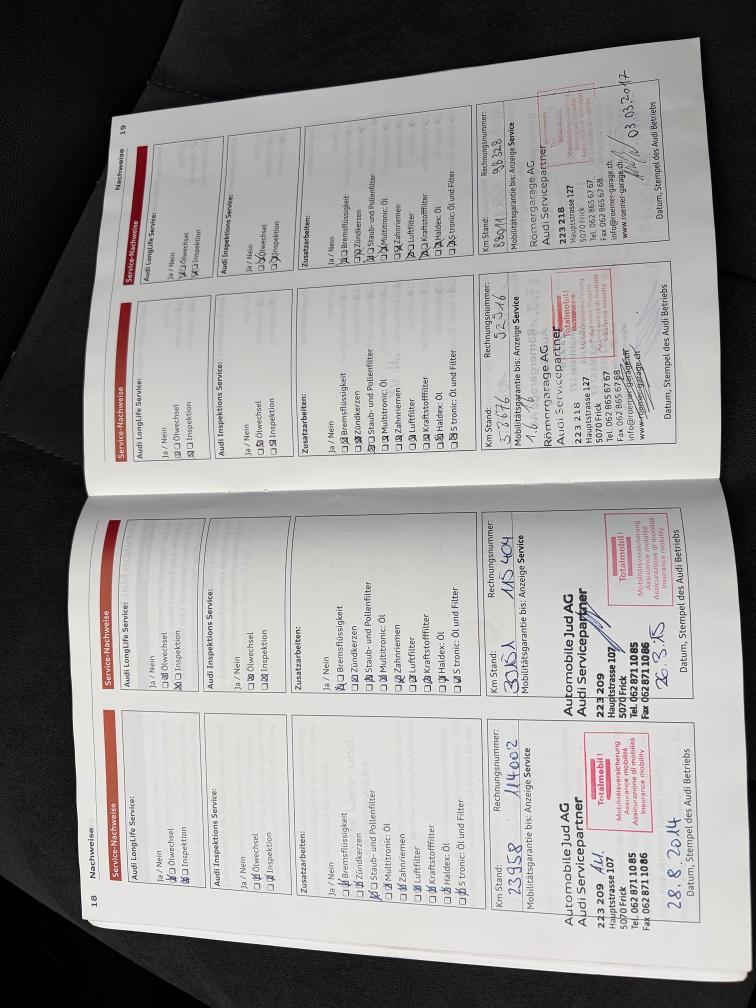 18 Nachweise
Service-Nachweise
Audi LongLife Service:
Ja / Nein
Ölwechsel
Inspektion
Audi Inspektions Service:
Ja / Nein
Ölwechsel
Inspektion
Zusatzarbeiten:
Ja / Nein
Bremsflüssigkeit
Zündkerzen
Staub- und Pollenfilter
Multitronic: Öl
Zahnriemen
Luftfilter
Kraftstofffilter
Haldex: Öl
S tronic: Öl und Filter
Km Stand: Rechnungsnummer:
23958 114002
Mobilitätsgarantie bis: Anzeige Service
Automobile Jud AG
Audi Servicepartner
223 209
Hauptstrasse 107
5070 Frick
Tel. 062 871 10 85
Fax 062 871 10 86
Totalmobil!
Mobilitätsversicherung
Assurance mobilité
Assicurazione di mobilità
Insurance mobility
28.8.2014
Datum, Stempel des Audi Betriebs
Service-Nachweise
Audi LongLife Service:
Ja / Nein
Ölwechsel
Inspektion
Audi Inspektions Service:
Ja / Nein
Ölwechsel
Inspektion
Zusatzarbeiten:
Ja / Nein
Bremsflüssigkeit
Zündkerzen
Staub- und Pollenfilter
Multitronic: Öl
Zahnriemen
Luftfilter
Kraftstofffilter
Haldex: Öl
S tronic: Öl und Filter
Km Stand: Rechnungsnummer:
30151 115404
Mobilitätsgarantie bis: Anzeige Service
Automobile Jud AG
Audi Servicepartner
223 209
Hauptstrasse 107
5070 Frick
Tel. 062 871 10 85
Fax 062 871 10 86
Totalmobil!
Mobilitätsversicherung
Assurance mobilité
Assicurazione di mobilità
Insurance mobility
26.3.15
Datum, Stempel des Audi Betriebs
Nachweise 19
Service-Nachweise
Audi LongLife Service:
Ja / Nein
Ölwechsel
Inspektion
Audi Inspektions Service:
Ja / Nein
Ölwechsel
Inspektion
Zusatzarbeiten:
Ja / Nein
Bremsflüssigkeit
Zündkerzen
Staub- und Pollenfilter
Multitronic: Öl
Zahnriemen
Luftfilter
Kraftstofffilter
Haldex: Öl
S tronic: Öl und Filter
Km Stand: Rechnungsnummer:
58676 92916
Mobilitätsgarantie bis: Anzeige Service
Römergarage AG
Audi Servicepartner
223 218
Hauptstrasse 127
5070 Frick
Tel. 062 865 67 67
Fax 062 865 67 68
info@roemer-garage.ch
www.roemer-garage.ch
Totalmobil!
Mobilitätsversicherung
Assurance mobilité
Assicurazione di mobilità
Insurance mobility
Datum, Stempel des Audi Betriebs
Service-Nachweise
Audi LongLife Service:
Ja / Nein
Ölwechsel
Inspektion
Audi Inspektions Service:
Ja / Nein
Ölwechsel
Inspektion
Zusatzarbeiten:
Ja / Nein
Bremsflüssigkeit
Zündkerzen
Staub- und Pollenfilter
Multitronic: Öl
Zahnriemen
Luftfilter
Kraftstofffilter
Haldex: Öl
S tronic: Öl und Filter
Km Stand: Rechnungsnummer:
88011 98328
Mobilitätsgarantie bis: Anzeige Service
Römergarage AG
Audi Servicepartner
223 218
Hauptstrasse 127
5070 Frick
Tel. 062 865 67 67
Fax 062 865 67 68
info@roemer-garage.ch
www.roemer-garage.ch
03.03.2017
Datum, Stempel des Audi Betriebs